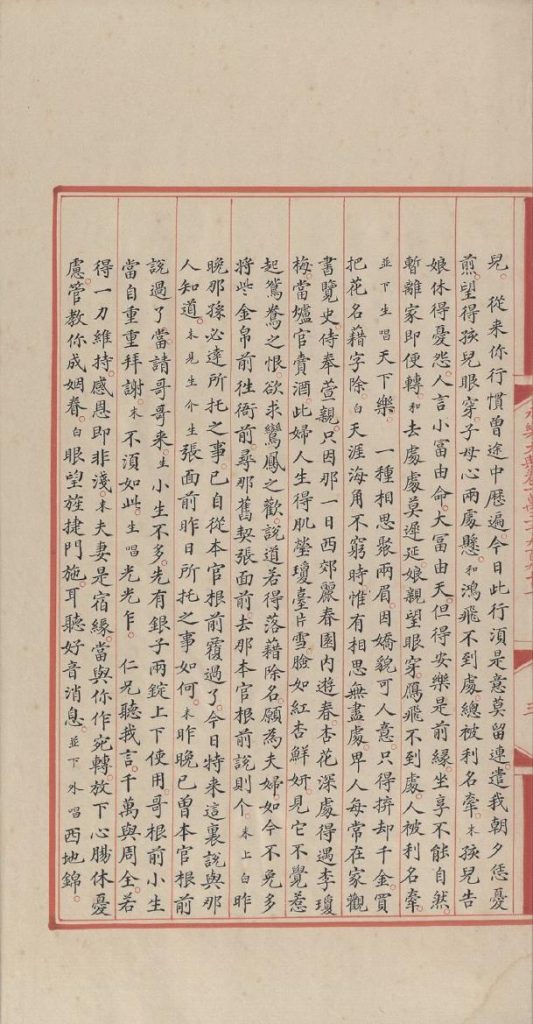 兒。從来你行慣曾途中歷遍。今日此行湏是意莫留連。遣我朝夕恁憂
煎。望得孩兒眼穿。子母心兩處懸。和鴻飛不到處總被利名牽。末孩兒告
娘休得憂怨。人言小冨由命。大冨由天。但得安樂是前緣。坐享不能自然
暫離家即便轉。和去處處莫遲延。娘親望眼穿。鴈飛不到處。人被利名牽。
並下生唱天下樂。一種相思聚兩眉。因嬌貌可人意。只得擠却千金。買
把花名藉字除。白天涯海角不窮時。惟有相思無盡處。卑人每常在家觀
書覽史。侍奉萱親。只因那一日西郊麗春園内遊春。杏花深處得遇李瓊
梅。當壚官賣酒。此婦人生得肌瑩瓊臺片雪。臉如紅杏鮮妍。見它不覺惹
起鴛鴦之恨。欲求鸞鳳之歡。說道若得落藉除名。願為夫婦。如今不免多
將些金帛前徃衙前。尋那舊契張面前去那本官根前說則个。末上白昨
晚那孫必達所托之事。已自從本官根前覆過了。今日特来這裏說與那
人知道。末見生介生張面前昨日所托之事如何。末昨晚已曾本官根前
說過了。當請哥哥来。生小生不多。先有銀子兩錠上下使用。哥根前小生
當自重重拜謝。末不湏如此。生唱光光乍。仁兄聽我言。千萬與周全。若
得一刀維持。感恩即非淺。末夫妻是宿緣。當與你作宛轉。放下心腸休憂
慮。管教你成姻眷。白眼望旌捷門施。耳聽好音消息。並下外唱西地錦。